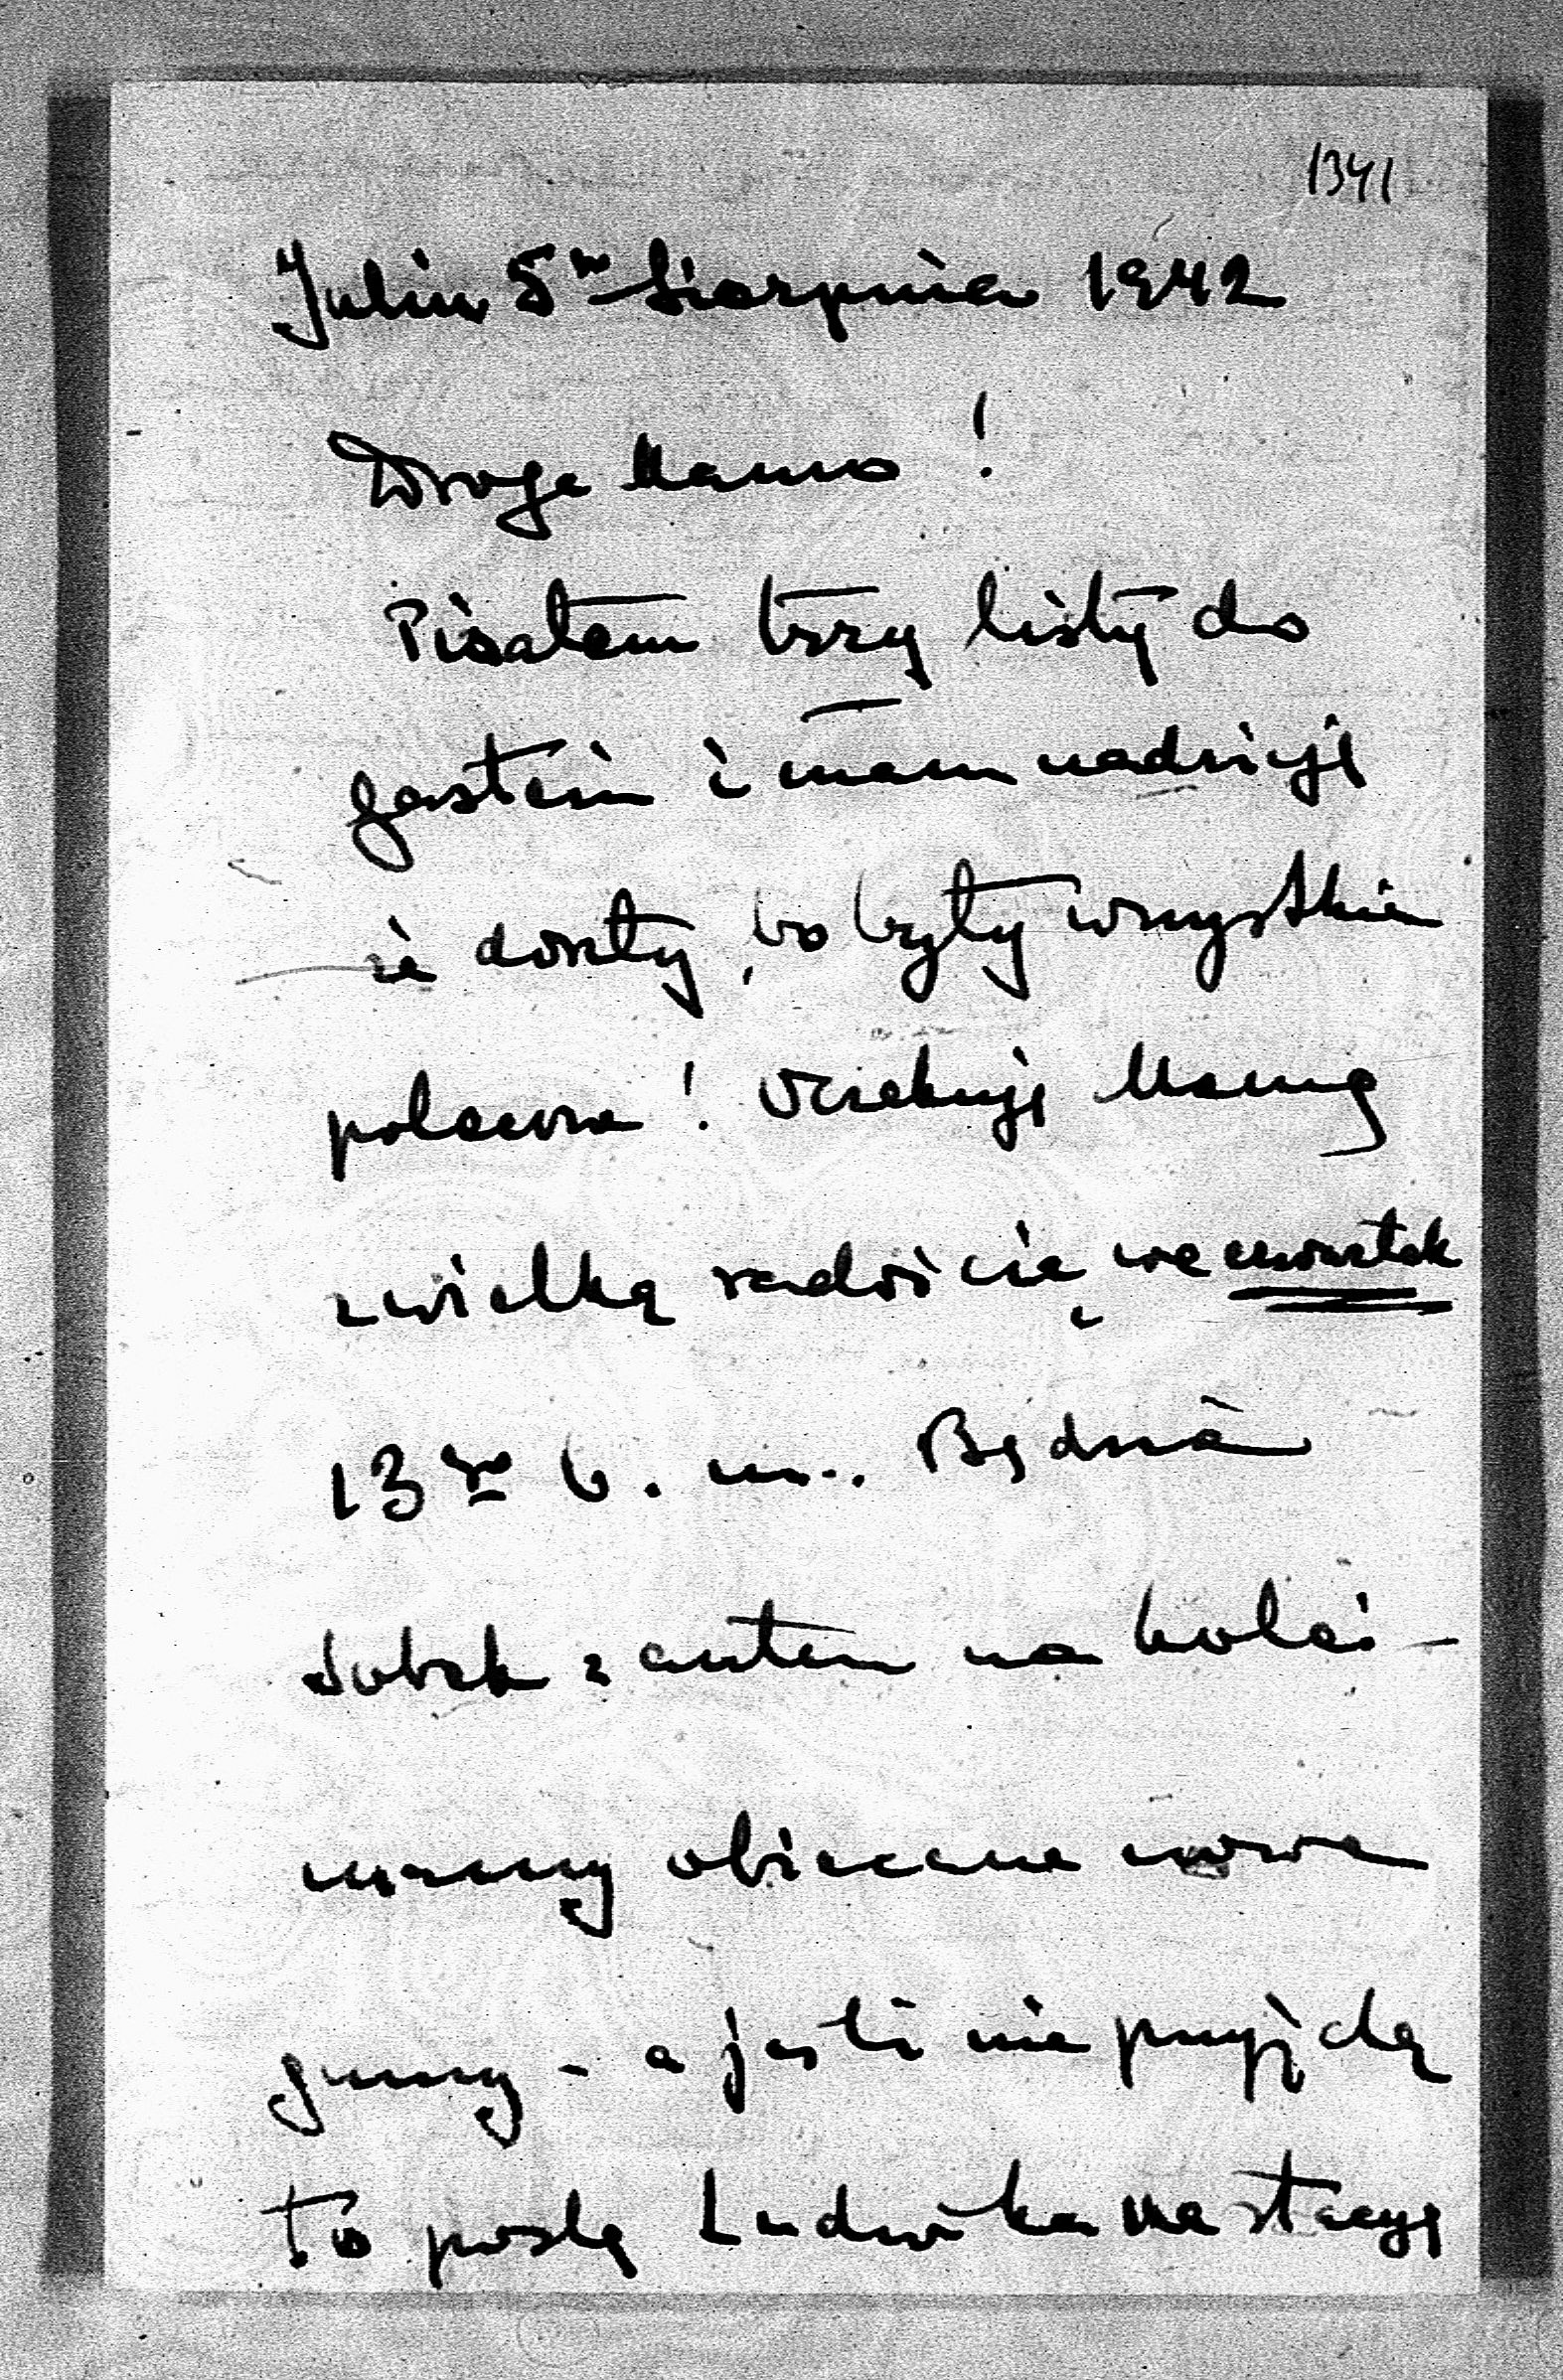 1341
Julin 5go Sierpnia 1942
Droga Mamo!
Pisałem trzy listy do
Gastein i mam nadzieję
że doszły, bo były wszystkie
polecone! Oczekuję Mamę
z wielką radością we czwartek
13go b. m.. Będzie
Sobek z autem na kolei –
mamy obiecane nowe
gumy – a jeśli nie przyjdą
to poślę Ludwika na stacyę